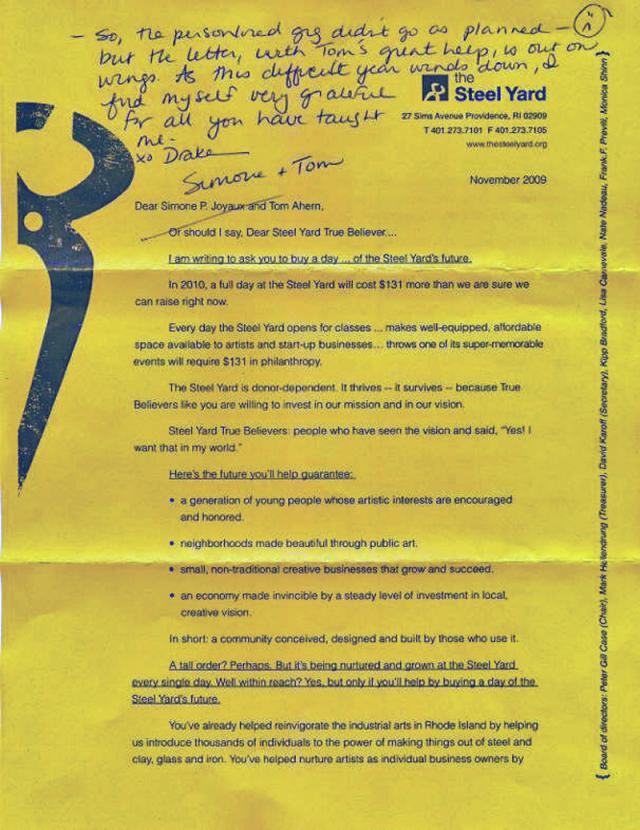 - So, the personlized gig didn't go as planned -
but the letter, with Tom's great help, is out on
wings. As this difficult year winds down, I
find myself very grateful
for all you have taught
me.
xo Drake
Simone + Tom
the
Steel Yard
27 Sims Avenue Providence, RI 02909
T 401.273.7101 F 401.273.7105
www.thesteelyard.org
November 2009
Dear Simone P. Joyaux and Tom Ahern,
Or should I say, Dear Steel Yard True Believer....
I am writing to ask you to buy a day ... of the Steel Yard's future.
In 2010, a full day at the Steel Yard will cost $131 more than we are sure we
can raise right now.
Every day the Steel Yard opens for classes ... makes well-equipped, affordable
space available to artists and start-up businesses... throws one of its super-memorable
events will require $131 in philanthropy.
The Steel Yard is donor-dependent. It thrives -- it survives -- because True
Believers like you are willing to invest in our mission and in our vision.
Steel Yard True Believers: people who have seen the vision and said, "Yes! I
want that in my world."
Here's the future you'll help guarantee:
• a generation of young people whose artistic interests are encouraged
and honored.
• neighborhoods made beautiful through public art.
• small, non-traditional creative businesses that grow and succeed.
• an economy made invincible by a steady level of investment in local,
creative vision.
In short: a community conceived, designed and built by those who use it.
A tall order? Perhaps. But it's being nurtured and grown at the Steel Yard
every single day. Well within reach? Yes, but only if you'll help by buying a day of the
Steel Yard's future.
You've already helped reinvigorate the industrial arts in Rhode Island by helping
us introduce thousands of individuals to the power of making things out of steel and
clay, glass and iron. You've helped nurture artists as individual business owners by
{ Board of directors: Peter Gill Case (Chair), Mark Hellendrung (Treasurer), David Karoff (Secretary), Kipp Bradford, Lisa Carnevale, Nate Nadeau, Frank F. Previll, Monica Shinn }